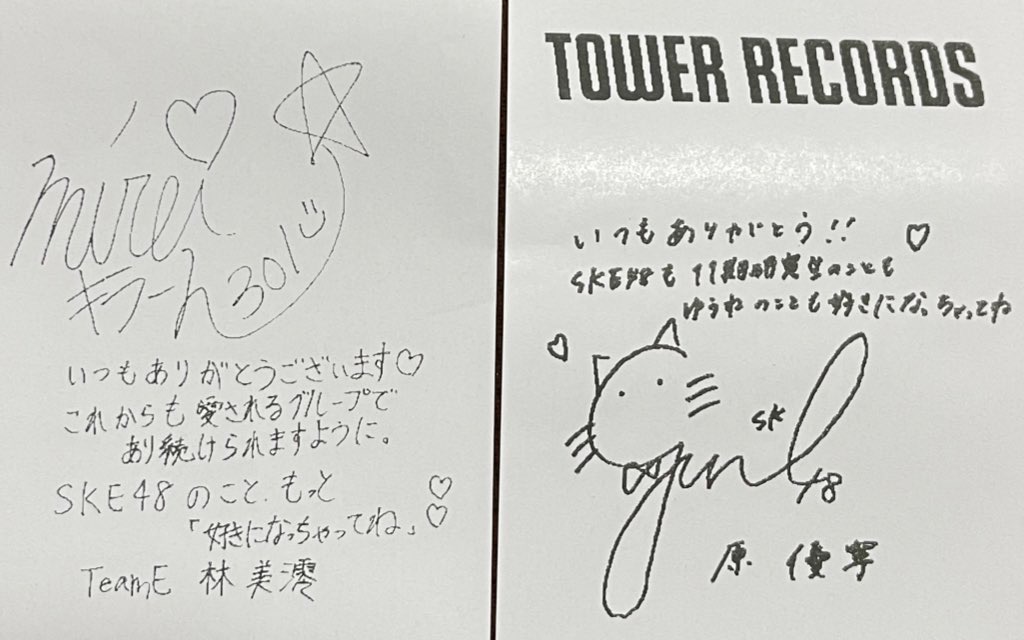 mirei
キラーん301
いつもありがとうございます♡
これからも愛されるグループで
あり続けられますように。
SKE48のこと、もっと
「好きになっちゃってね」
TeamE 林美澪
TOWER RECORDS
いつもありがとう!! ♡
SKE48も11期研究生のことも
ゆうねのことも好きになっちゃってね
SK
48
原 優寧